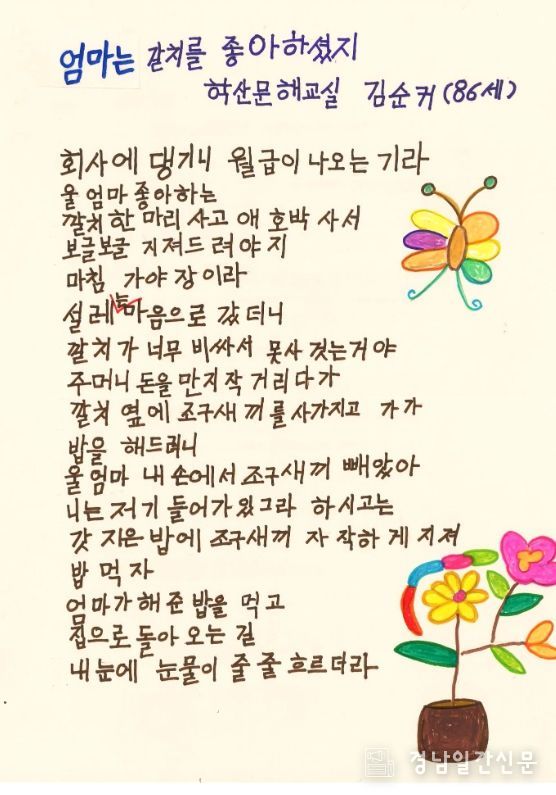 엄마는 갈치를 좋아하셨지
학산문해교실 김순커(86세)
회사에 댕기니 월급이 나오는 기라
울 엄마 좋아하는
깔치 한 마리 사고 애호박 사서
보글보글 지져드려야지
마침 가야장이라
설레는 마음으로 갔더니
깔치가 너무 비싸서 못사겄는거야
주머니 돈을 만지작거리다가
깔치 옆에 조구새끼를 사가지고 가가
밥을 해드려니
울엄마 내 손에서 조구새끼 빼앗아
니는 저기 들어가 있그라 하시고는
갓 지은 밥에 조구새끼 자작하게 지져
밥 먹자
엄마가 해준 밥을 먹고
집으로 돌아 오는 길
내 눈에 눈물이 줄줄 흐르더라
경남일간신문